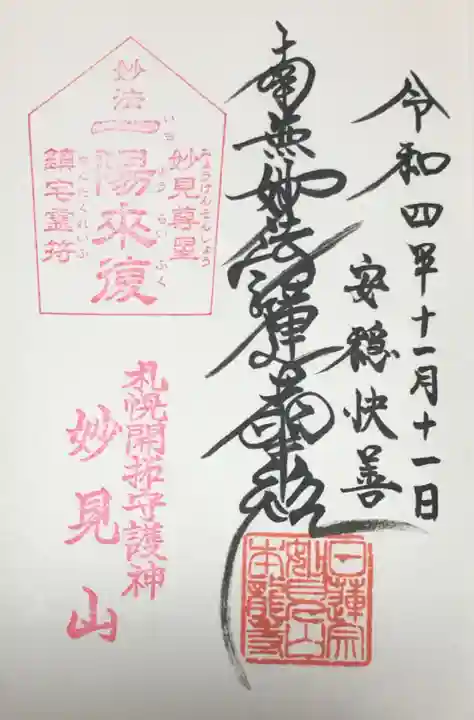 令和四年十一月十一日
安穏快善
南無妙法蓮華経
妙法
一陽来復
いちようらいふく
妙見尊星
みょうけんそんしょう
鎮宅霊符
ちんたくれいふ
札幌開拓守護神
妙見山
日蓮宗
妙見山
本龍寺